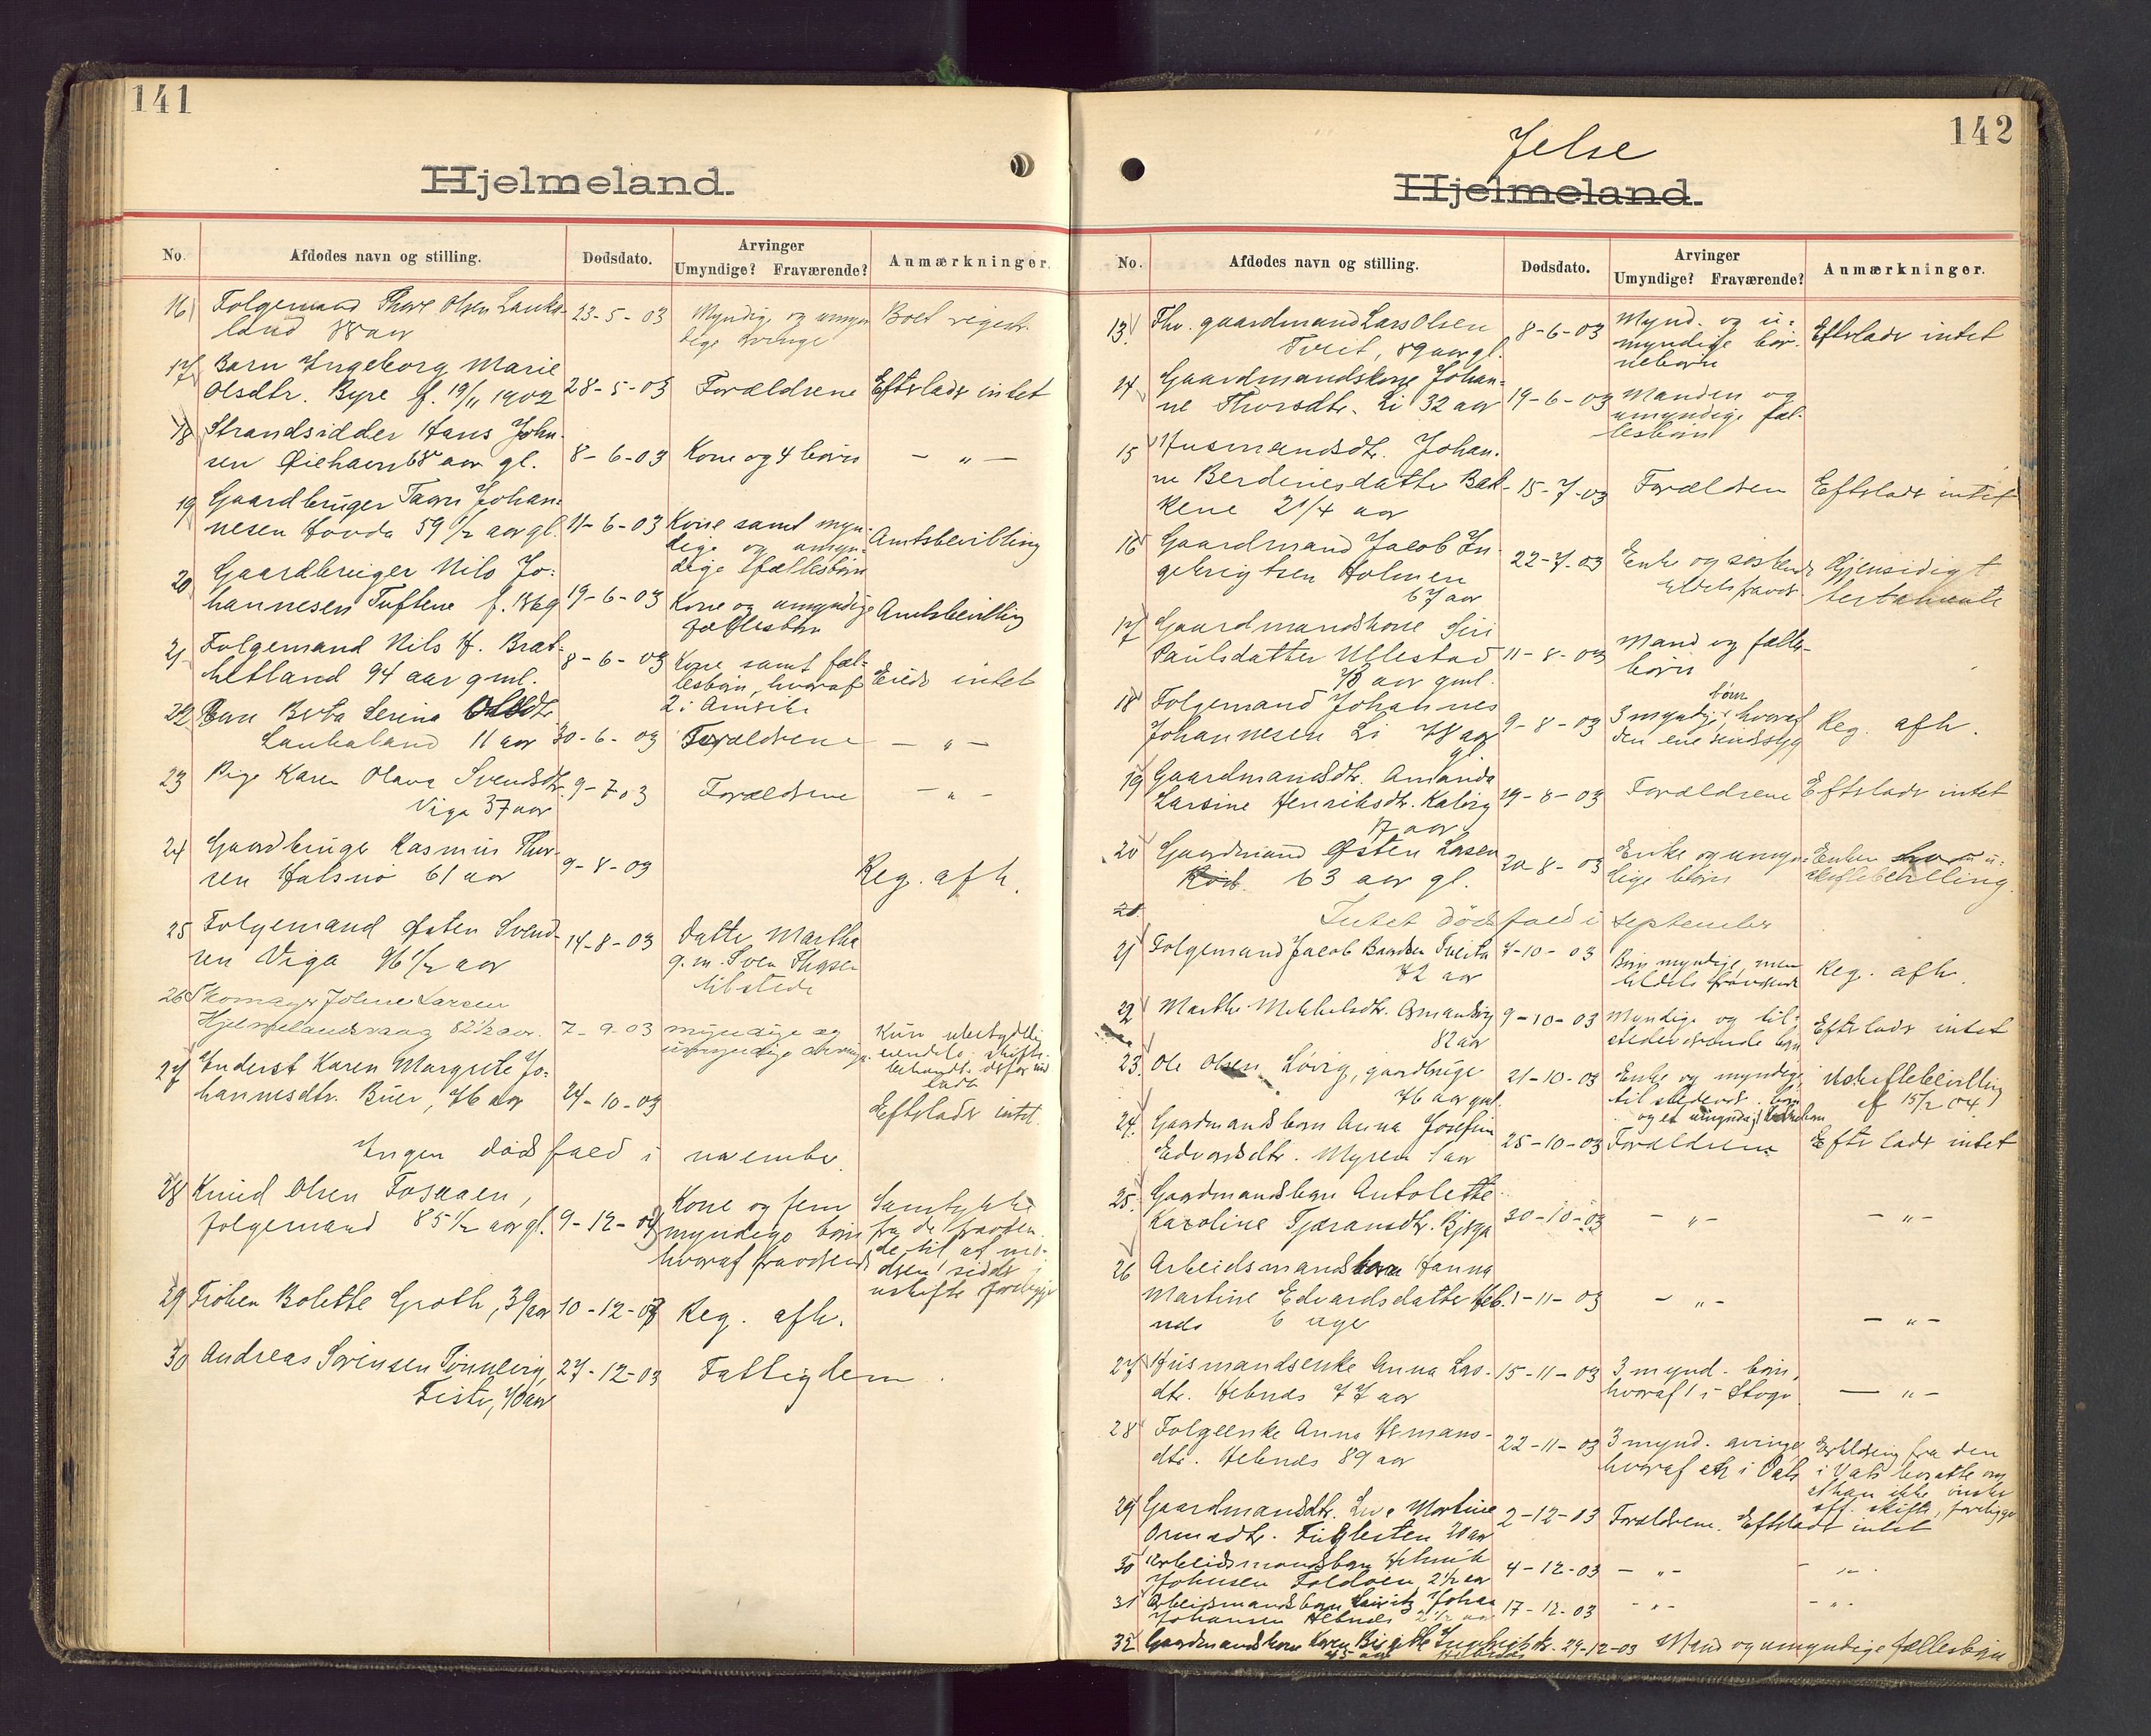 141
Hjelmeland.
No.
Afdødes navn og stilling.
Dødsdato.
Arvinger
Umyndige? Fraværende?
Anmærkninger.
16 Folgemand Thore Olsen Lauks-
land 88 aar
23-5-03
Myndig og umyn
dige
Boet registr.
17 Barn Ingeborg Marie
Olsdtr. Byre f. 19/11 1902
28-5-03
Forældrene
Efterlader intet
18 Strandsidder Hans John-
sen Øiehavn 68 aar gl.
8-6-03
Kone og 4 børn
- " -
19 Gaardbruger Johan-
nesen Hovda 59 1/2 aar gl.
11-6-03
Kone samt myn-
dige og umyn-
dige fællesbørn
Amtsbevilling
20 Gaardbruger Nils Jo-
hannesen Tuftene f. 1869
19-6-03
Kone og umyndige
fællesbørn
Amtsbevilling
21 Folgemand Nils H. Bræt-
hetland 94 aar gml.
8-6-03
Kone samt fæl-
lesbørn, hvoraf
2 i Amerika
Eiede intet
22 Barn Berta Serina Olsdtr
Laukaland 11 aar
30-6-03
Forældrene
- " -
23 Pige Karen Olava Svendsdtr.
Viga 37 aar
9-7-03
Forældrene
- " -
24 Gaardbruger Rasmus Thor-
sen Halsnø 61 aar
9-8-03
Reg. afh.
25 Folgemand Østen Svend-
sen Viga 96 1/2 aar
14-8-03
Datter Martha
g. m. Sven
tilstede
26 Skomager Larsen
Hjelmelandsvaag 82 1/2 aar.
7-9-03
myndige og
umyndige arvinger
Kun ubetydelig
27 Enderst Karen Margrete Jo-
hannesdtr. Buer, 76 aar
24-10-03
Efterlader intet.
Ingen dødsfald i november
28 Knud Olsen Fosaaen,
folgemand 85 1/2 aar gl.
9-12-03
Kone og fem
myndige børn
hvoraf
Samtykke
fra de
de til at mo-
deren sidder i
uskifte foreligger
29 Frøken Bolette Groth, 39 aar
10-12-03
Reg. afh.
30 Andreas Sørensen Tønnevig,
Fister, 70 aar
27-12-03
Fattiglem.
142
Jelse
Hjelmeland.
No.
Afdødes navn og stilling.
Dødsdato.
Arvinger
Umyndige? Fraværende?
Anmærkninger.
13 Fhv. gaardmand Lars Olsen
Tveit, 89 aar gl.
8-6-03
Mynd. og u-
myndige bør-
nebørn
Efterlader intet
14 Gaardmandskone Johan-
ne Thorsdtr. Li 32 aar
19-6-03
Manden og
umyndige fæl-
lesbørn
15 Husmandsdtr. Johan-
ne Berdinesdatter Bak-
kene 2 1/4 aar
15-7-03
Forældren
Efterlader intet
16 Gaardmand Jacob In-
gebrigtsen Holmen
67 aar
22-7-03
Enke og søskende
Gjensidigt
testamente
17 Gaardmandskone Siri
Paulsdatter Ullestad
78 aar gml.
11-8-03
Mand og fælles-
børn
18 Folgemand Johannes
Johannesen Li 78 aar
gl.
9-8-03
3 myndige børn hvoraf
den ene sindssyg
Reg. afh.
19 Gaardmandsdtr. Amanda
Larsine Henriksdtr. Kalvig
17 aar
29-8-03
Forældrene
Efterlader intet
20 Gaardmand Østen Larsen
63 aar gl.
20-8-03
Enke og umyn-
dige børn
Enken u-
skiftebevilling.
Intet dødsfald i september
21 Folgemand Jacob Baardsen Tveita
72 aar
7-10-03
Børn myndige, men
tildels fraværende
Reg. afh.
22 Marthe Mikkelsdtr.
82 aar
9-10-03
Myndige og til-
stedeværende børn
Efterlader intet
23 Ole Olsen Løvig, gaardbruger
76 aar gml.
21-10-03
Enke og myndige
tilstedev. børn
og et umyndigt
Uskiftebevilling
af 15/2 04
24 Gaardmandsbarn Anna Josefine
Edvardsdtr. Myren 1 aar
25-10-03
Forældrene
Efterlader intet
25 Gaardmandsbarn Antolette
Karoline Tjæransdtr.
30-10-03
- " -
- " -
26 Arbeidsmandsbarn Hanna
Martine Edvardsdatter Heb-
nes 6 uger
1-11-03
- " -
- " -
27 Husmandsenke Anna Las-
dtr. Hebnes 77 aar
15-11-03
3 mynd. børn,
hvoraf 1 i
- " -
28 Folgeenke Anna
dtr. Hebnes 89 aar
22-11-03
3 mynd. arvinger
hvoraf en i Vats
Erklæring fra den
i Vats bosatte om
at han ikke ønsker
off. skifte, foreligger
29 Gaardmandsdtr. Martine
Ormsdtr. 20 aar
2-12-03
Forældrene. Efterlader intet
30 Arbeidsmandsbarn Henrik
Johnsen Foldøen 2 1/2 aar
4-12-03
- " -
- " -
31 Arbeidsmandsbarn Johan
Johansen Hebnes 2 1/2 aar
17-12-03
- " -
- " -
32 Gaardmandskone Karen Birgitte
45 aar Hebnes
29-12-03
Mand og umyndige fællesbørn